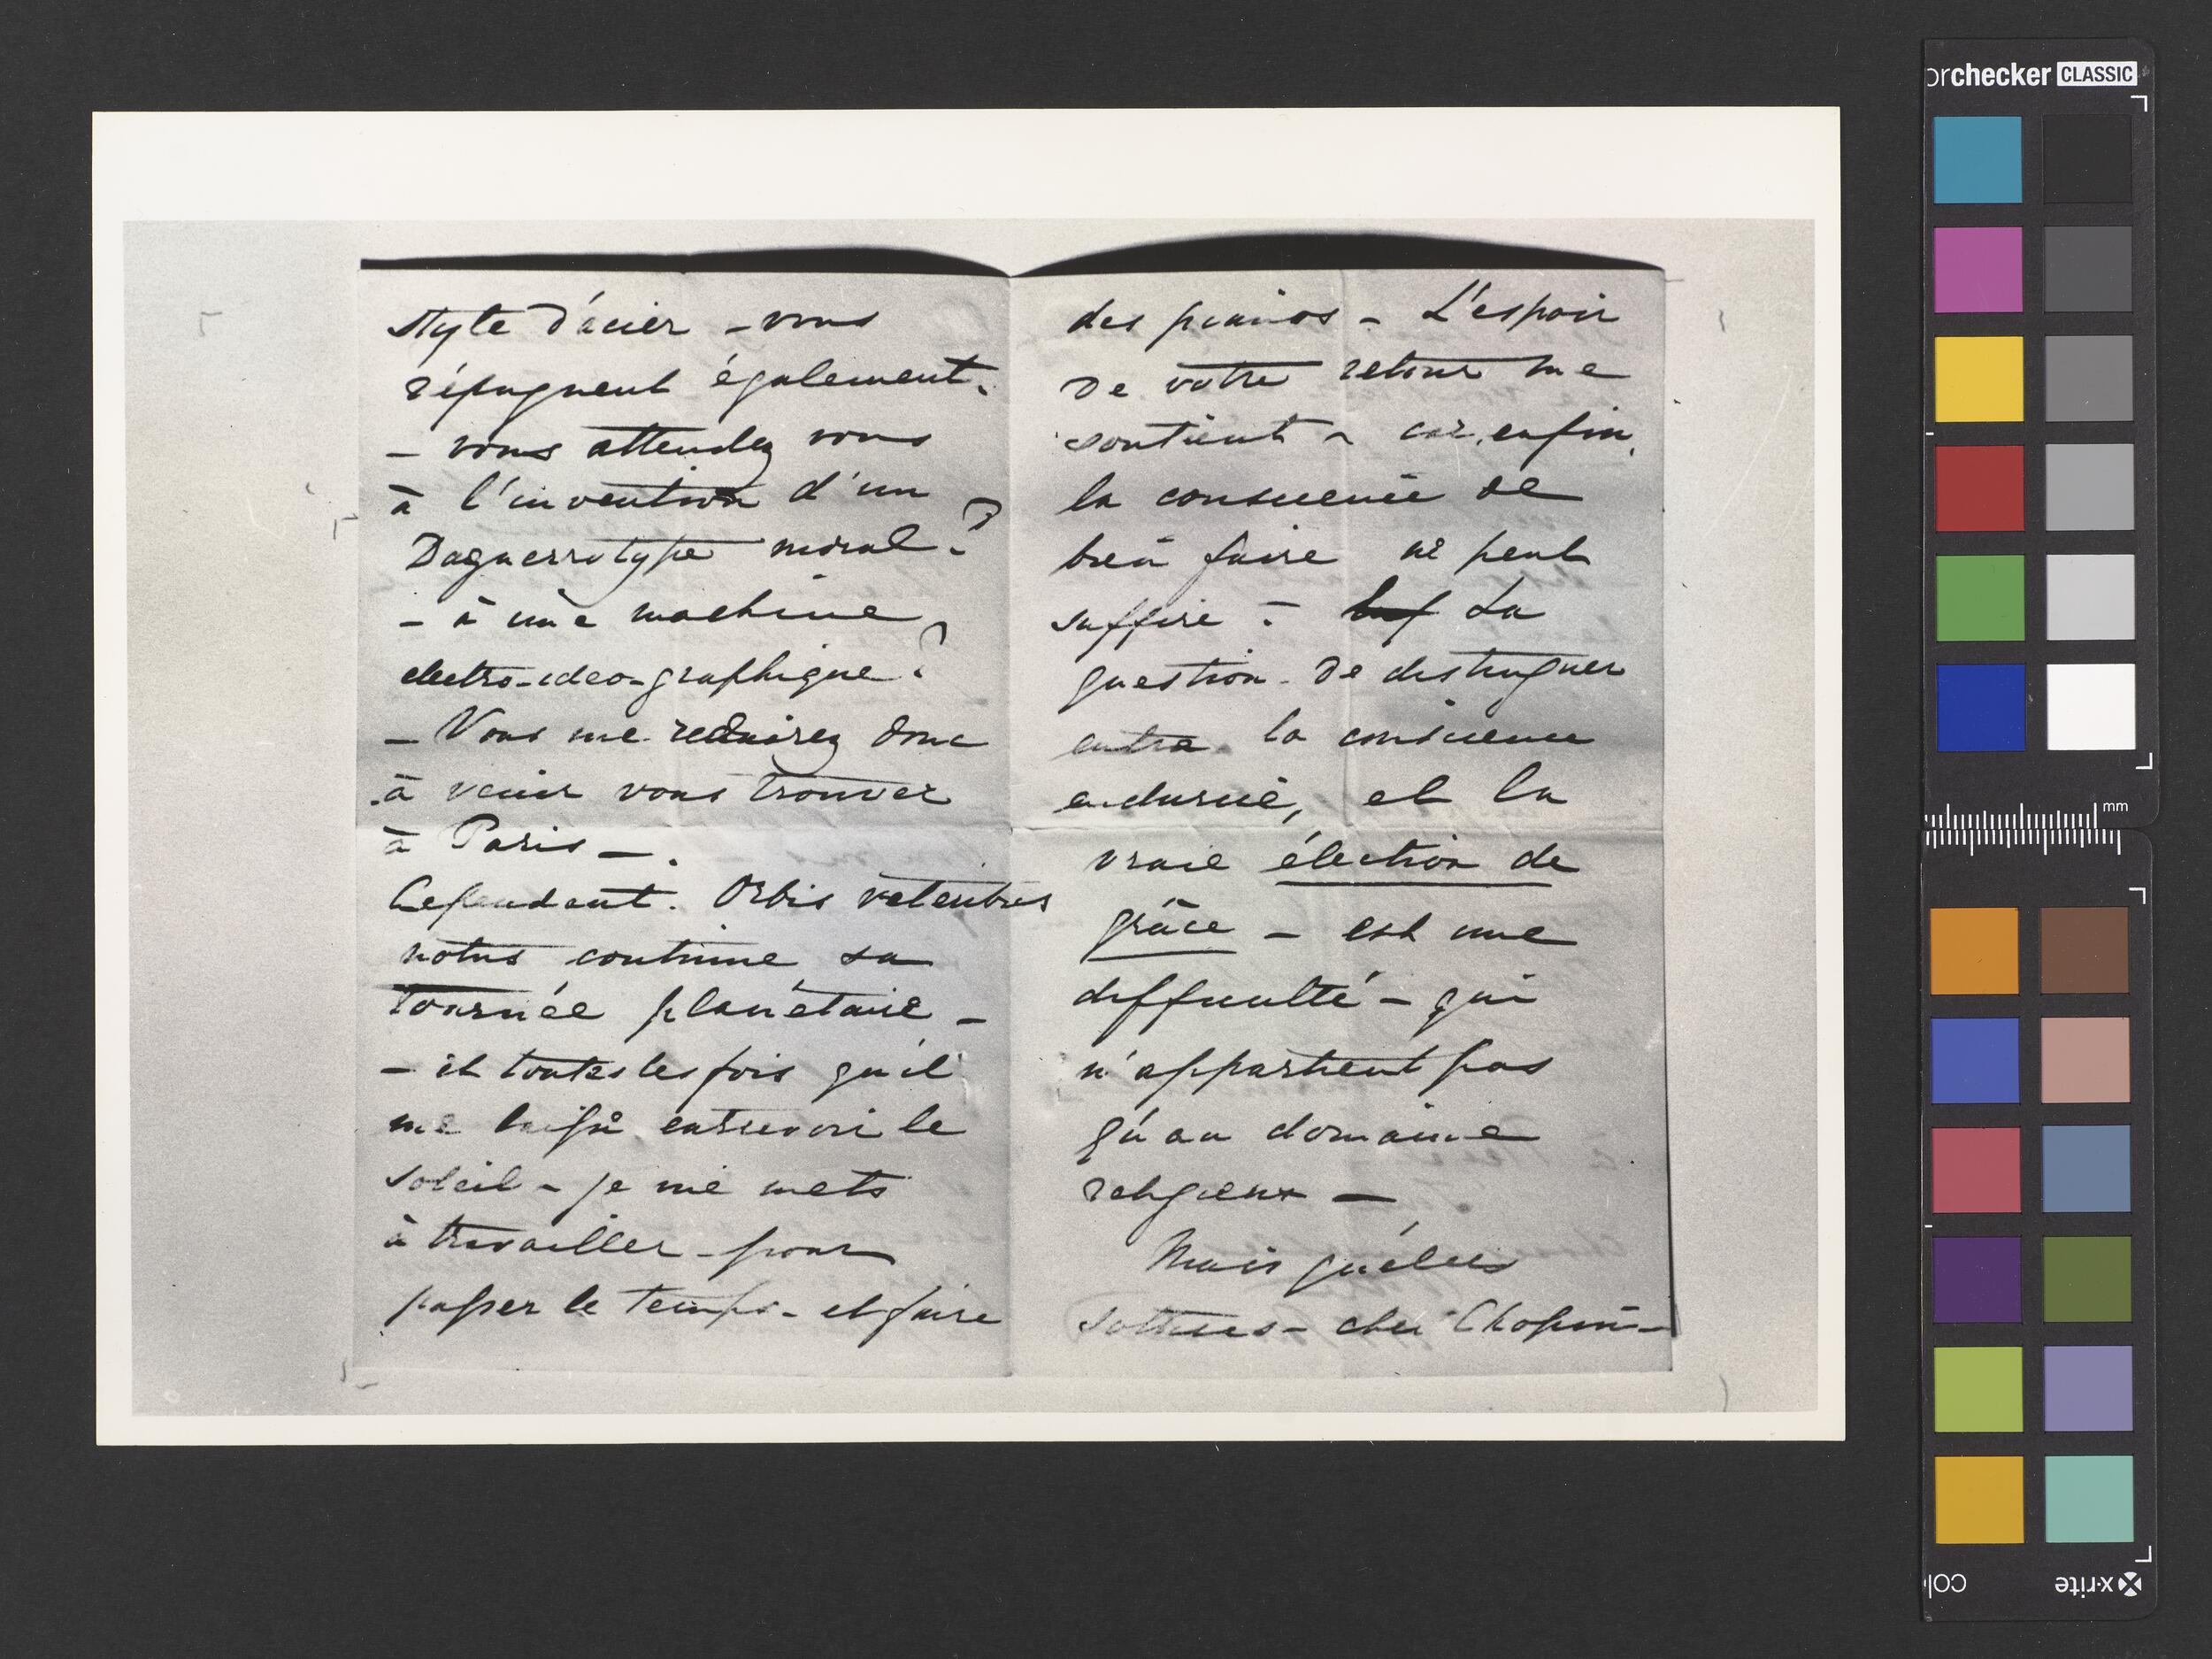 style d'acier – vous
répugnent également.
– vous attendez vous
à l'invention d'un
Daguerrotype moral?
– à une machine
electro-ideo-graphique?
– Vous me reduirez donc
à venir vous trouver
à Paris –.
Cependant. Orbis
notus continue sa
tournée planétaire –
– et toutes les fois qu'il
me laisse entrevoir le
soleil – je me mets
à travailler – pour
passer le temps – et faire
des pianos – L'espoir
de votre retour me
soutient – car, enfin,
la conscience de
bien faire ne peut
suffire – La
question de distinguer
entre la conscience
endurcie, et la
vraie élection de
grâce – est une
difficulté – qui
n'appartient pas
qu'au domaine
religieux –
Mais quelles
sottises – cher Chopin –
orchecker CLASSIC
mm
x-rite
colo